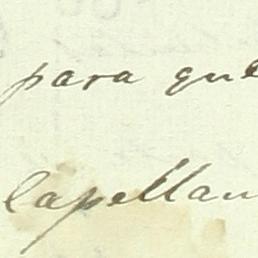 para que
Capellan